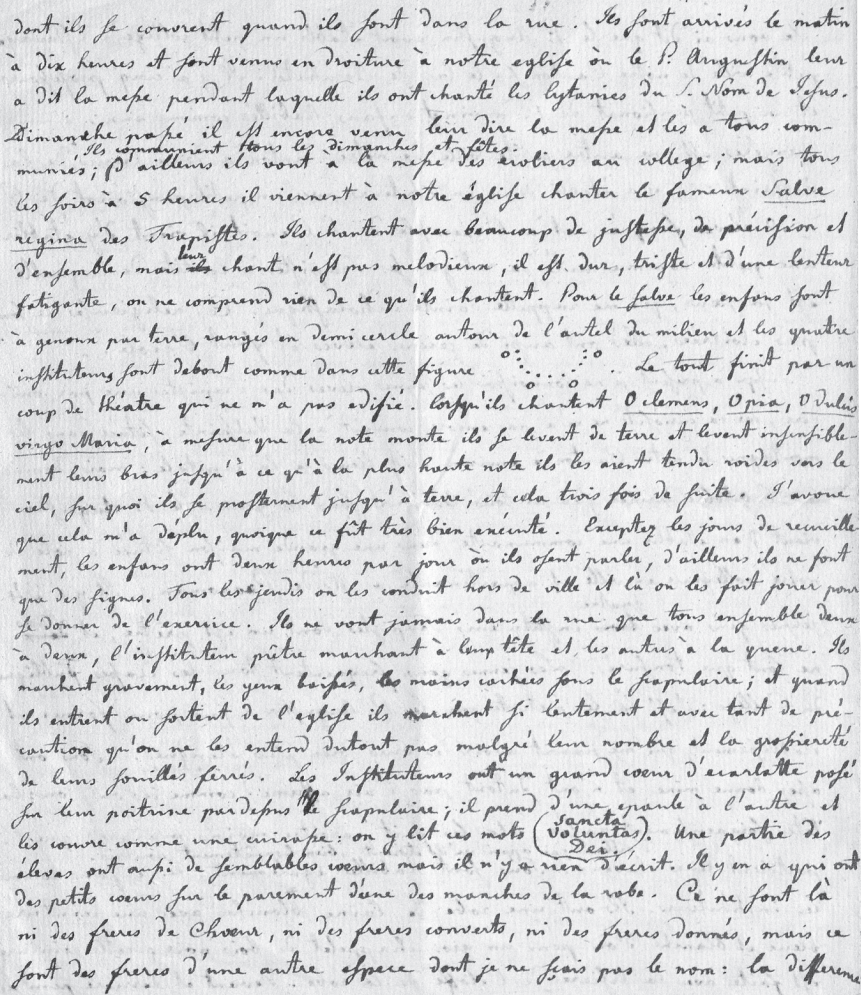 dont ils se couvrent quand ils sont dans la rue. Ils sont arrivés le matin
à dix heures et sont venus en droiture à notre eglise où le P. Augustin leur
a dit la messe pendant laquelle ils ont chanté les lytanies du S. Nom de Jesus.
Dimanche passé il est encore venu leur dire la messe et les a tous com-
Ils communient tous les dimanches et fêtes.
muniés; d'ailleurs ils vont a la messe des écoliers au college; mais tous
les soirs à 5 heures il viennent à notre église chanter le fameux Salve
regina des Trapistes. Ils chantent avec beaucoup de justesse, de précision et
leur
d'ensemble, mais ils chant n'est pas melodieux, il est dur, triste et d'une lenteur
fatigante, on ne comprend rien de ce qu'ils chantent. Pour le salve les enfans sont
à genoux par terre, rangés en demi cercle autour de l'autel du milieu et les quatre
instituteurs sont debout comme dans cette figure . Le tout finit par un
coup de théatre qui ne m'a pas edifié. Lorsqu'ils chantent O clemens, O pia, O dulcis
virgo Maria, à mesure que la note monte ils se levent de terre et levent insensible-
ment leurs bras jusqu'à ce qu'à la plus haute note ils les aient tendu roides vers le
ciel, sur quoi ils se prosternent jusqu'à terre, et cela trois fois de suite. J'avoue
que cela m'a déplu, quoique ce fût très bien exécuté. Exceptez les jours de recueille-
ment, les enfans ont deux heures par jour où ils osent parler, d'ailleurs ils ne font
que des signes. Tous les jeudis on les conduit hors de ville et là on les fait jouer pour
se donner de l'exercice. Ils ne vont jamais dans la rue que tous ensemble deux
à deux, l'instituteur prêtre marchant à leur tête et les autres à la queue. Ils
marchent gravement, les yeux baissés, les mains cachées sous le scapulaire; et quand
ils entrent ou sortent de l'eglise ils marchent si lentement et avec tant de pré-
caution qu'on ne les entend dutout pas malgré leur nombre et la grossiereté
de leurs souillés ferrés. Les Instituteurs ont un grand coeur d'ecarlatte posé
sur leur poitrine pardessus le scapulaire; il prend d'une epaule à l'autre et
les couvre comme une cuirasse: on y lit ces mots (Sancta Voluntas Dei). Une partie des
éleves ont aussi de semblables coeurs mais il n'y a rien d'écrit. Il y en a qui ont
des petits coeurs sur le parement d'une des manches de la robe. Ce ne sont là
ni des freres de Choeur, ni des freres converts, ni des freres donnés, mais ce
sont des freres d'une autre espece dont je ne sçais pas le nom: la difference